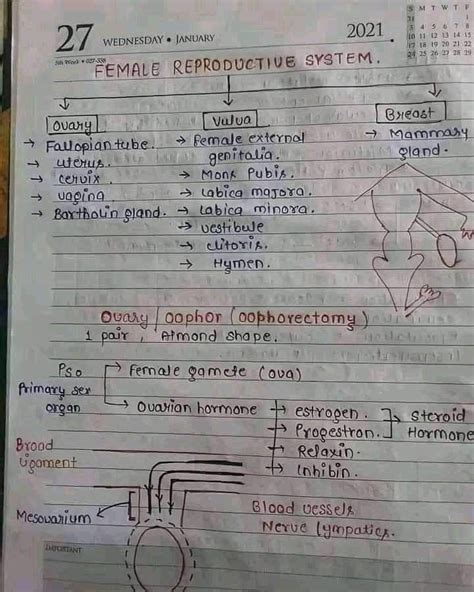 27 WEDNESDAY • JANUARY 2021
5th Week • 027-338
S M T W T F
31
3 4 5 6 7 8
10 11 12 13 14 15
17 18 19 20 21 22
24 25 26 27 28 29
FEMALE REPRODUCTIVE SYSTEM.
Ovary Valva Breast
→ Fallopian tube. → Female external → Mammary
→ uterus. genitalia. gland.
→ cervix. → Monk Pubis.
→ vagina → Labica majora.
→ Bartholin gland. → Labica minora.
→ vestibule
→ clitoris.
→ Hymen.
Ovary / oophor (oophorectomy)
1 pair, Almond shape.
PSO → Female gamete (ova)
Primary sex
organ → Ovarian hormone → estrogen. → Steroid
→ Progestron. Hormone
→ Relaxin.
→ Inhibin.
Broad
ligament
Mesovarium
Blood vessels
Nerve lympatics.
IMPORTANT